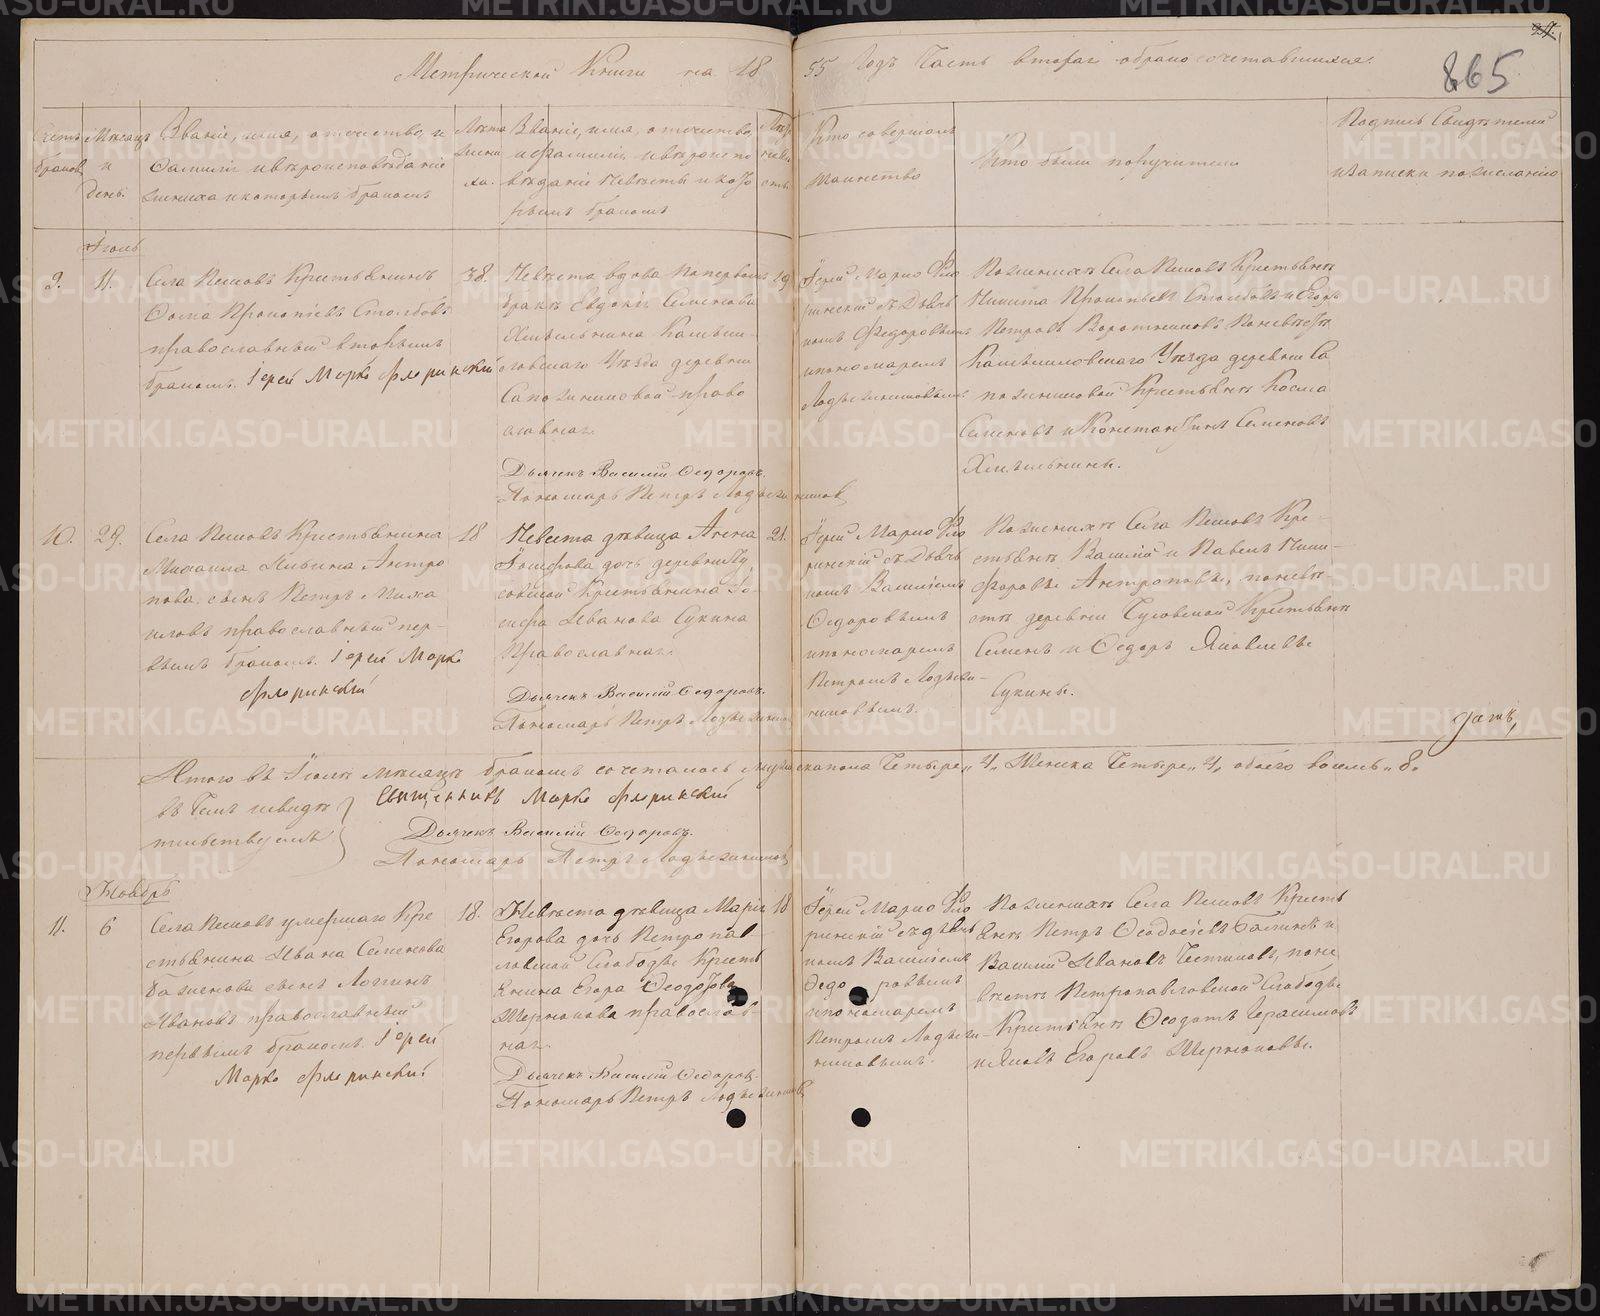 Метрической Книги на 1855 Годъ Часть вторая о бракосочетавшихся.
24.
865
Счетъ браков
Мѣсяцъ и день
Званіе, имя, отчество, и
Фамилія и вѣроисповѣданіе
жениха и которымъ бракомъ
Лѣта
жени
ха.
Званіе, имя, отчество,
и фамилія и вѣроиспо
вѣданіе Невѣсты и кото
рымъ бракомъ
Кто совершалъ
таинство
Кто были поручители
Подпись Свидѣтелей
и записки по желанію
Іюль
9.
11.
Села Пешовъ Крестьянинъ
Фома Прокопіевъ Столбовъ
православный вторымъ
бракомъ. Іерей Марко Флоринскій
38.
Невѣста вдова по первомъ
бракѣ Евдокія Семенова
Хмѣльнина Камыш-
ловскаго Уѣзда деревни
Сапожниковой право
славная.
Дьячекъ Василій Ѳедоровъ
Пономарь Петръ Ладыжниковъ
19
Іерей Марко Фло
ринскій съ Дьяч
комъ Федоровымъ
и пономаремъ
Ладыжниковымъ
По женихѣ Села Пешовъ Крестьяне
Никита Прокопьевъ Столбовъ и Егоръ
Петровъ Воротниковъ По невѣстѣ
Камышловскаго Уѣзда деревни Са
пожниковой Крестьяне Косма
Семеновъ и Константинъ Семеновъ
Хмѣльнины.
10.
29.
Села Пешовъ Крестьянина
Михаила Ильина Антро
пова сынъ Петръ Миха
иловъ православный пер-
вымъ бракомъ. Іерей Марко
Флоринскій
18
Невѣста дѣвица Анна
Іосифова дочь деревни Чу
совской Крестьянина Іо-
сифа Иванова Сукина
Православная.
Дьячекъ Василій Ѳедоровъ.
Пономарь Петръ Ладыжников
21.
Іерей Марко Фло
ринскій съ Дьяч
комъ Василіемъ
Ѳедоровымъ
и пономаремъ
Петромъ Ладыж-
никовымъ.
По женихѣ Села Пешовъ Кре-
стьяне Василій и Павелъ Ники-
форовы Антроповы, по невѣ-
стѣ деревни Чусовской Крестьяне
Семенъ и Ѳедоръ Яковлевы
Сукины.
Итого въ Іюлѣ мѣсяцѣ бракомъ сочеталось мужеска пола Четыре „4„ Женска Четыре „4„ обоего восемь „8„
въ чемъ и свидѣ
тельствуемъ
Священникъ Марко Флоринскій
Дьячекъ Василій Ѳедоровъ.
Пономарь Петръ Ладыжниковъ
Ноябрь
11.
6
Села Пешовъ умершаго Кре
стьянина Ивана Семенова
Баженова сынъ Логинъ
Ивановъ православный
первымъ бракомъ. Іерей
Марко Флоринскій
18.
Невѣста дѣвица Марія
Егорова дочь Петропав-
ловской Слободы Кресть
янина Егора Ѳеодотова
Шерюкова православ-
ная.
Дьячекъ Василій Ѳедоровъ.
Пономарь Петръ Ладыжниковъ
18
Іерей Марко Фло
ринскій съ дьяч
комъ Василіемъ
Ѳедоровымъ
и пономаремъ
Петромъ Ладыж-
никовымъ.
По женихѣ Села Пешовъ Кресть
яне Петръ Ѳеодосіевъ и
Василій Ивановъ по не
вѣстѣ Петропавловской Слободы
Крестьяне Ѳеодотъ Герасимовъ
и Яковъ Егоровъ Шерюковы.
METRIKI.GASO-URAL.RU